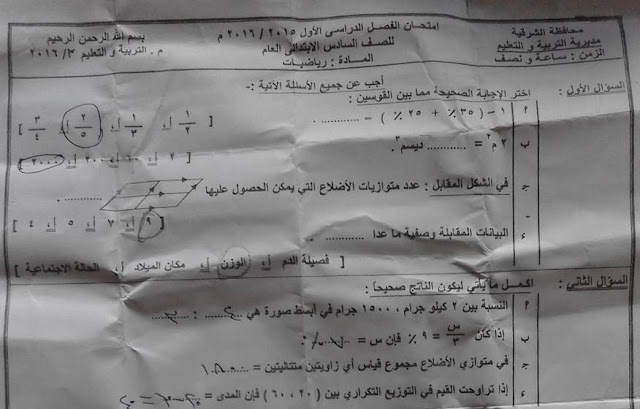 محافظة الشرقية
مديرية التربية و التعليم
الزمن : ساعة و نصف
امتحان الفصل الدراسى الأول ٢٠١٥ / ٢٠١٦ م
للصف السادس الابتدائى العام
المادة : رياضيات
بسم الله الرحمن الرحيم
م . التربية و التعليم ٣ / ٢٠١٦
أجب عن جميع الأسئلة الآتية :-
السؤال الأول : اختر الإجابة الصحيحة مما بين القوسين :
أ ١ – ( ٣٥ ٪ + ٢٥ ٪ ) = ............
[ ١/٢ أ، ١/٣ أ، ٢/٥ أ، ٣/٤ ]
ب ٢ م٣ = ............ ديسم٣
[ ٢ أ، أ، ٢٠٠ أ، ٢٠٠٠ ]
ج في الشكل المقابل : عدد متوازيات الأضلاع التي يمكن الحصول عليها ............
[ ٤ أ، ٥ أ، ٧ أ، ٩ ]
ء البيانات المقابلة وصفية ما عدا ............
[ فصيلة الدم أ، الوزن أ، مكان الميلاد أ، الحالة الاجتماعية ]
السؤال الثاني : أكمل ما يأتي ليكون الناتج صحيحاً :
أ النسبة بين ٢ كيلو جرام ، ١٥٠٠ جرام في أبسط صورة هي ٤ : ٣
ب إذا كان س/٣ = ٩ ٪ فإن س =
ج في متوازي الأضلاع مجموع قياس أي زاويتين متتاليتين = ١٨٠
ء إذا تراوحت القيم في التوزيع التكراري بين ( ٢٠ ، ٦٠ ) فإن المدى = ٦٠ - ٢٠ = ٤٠